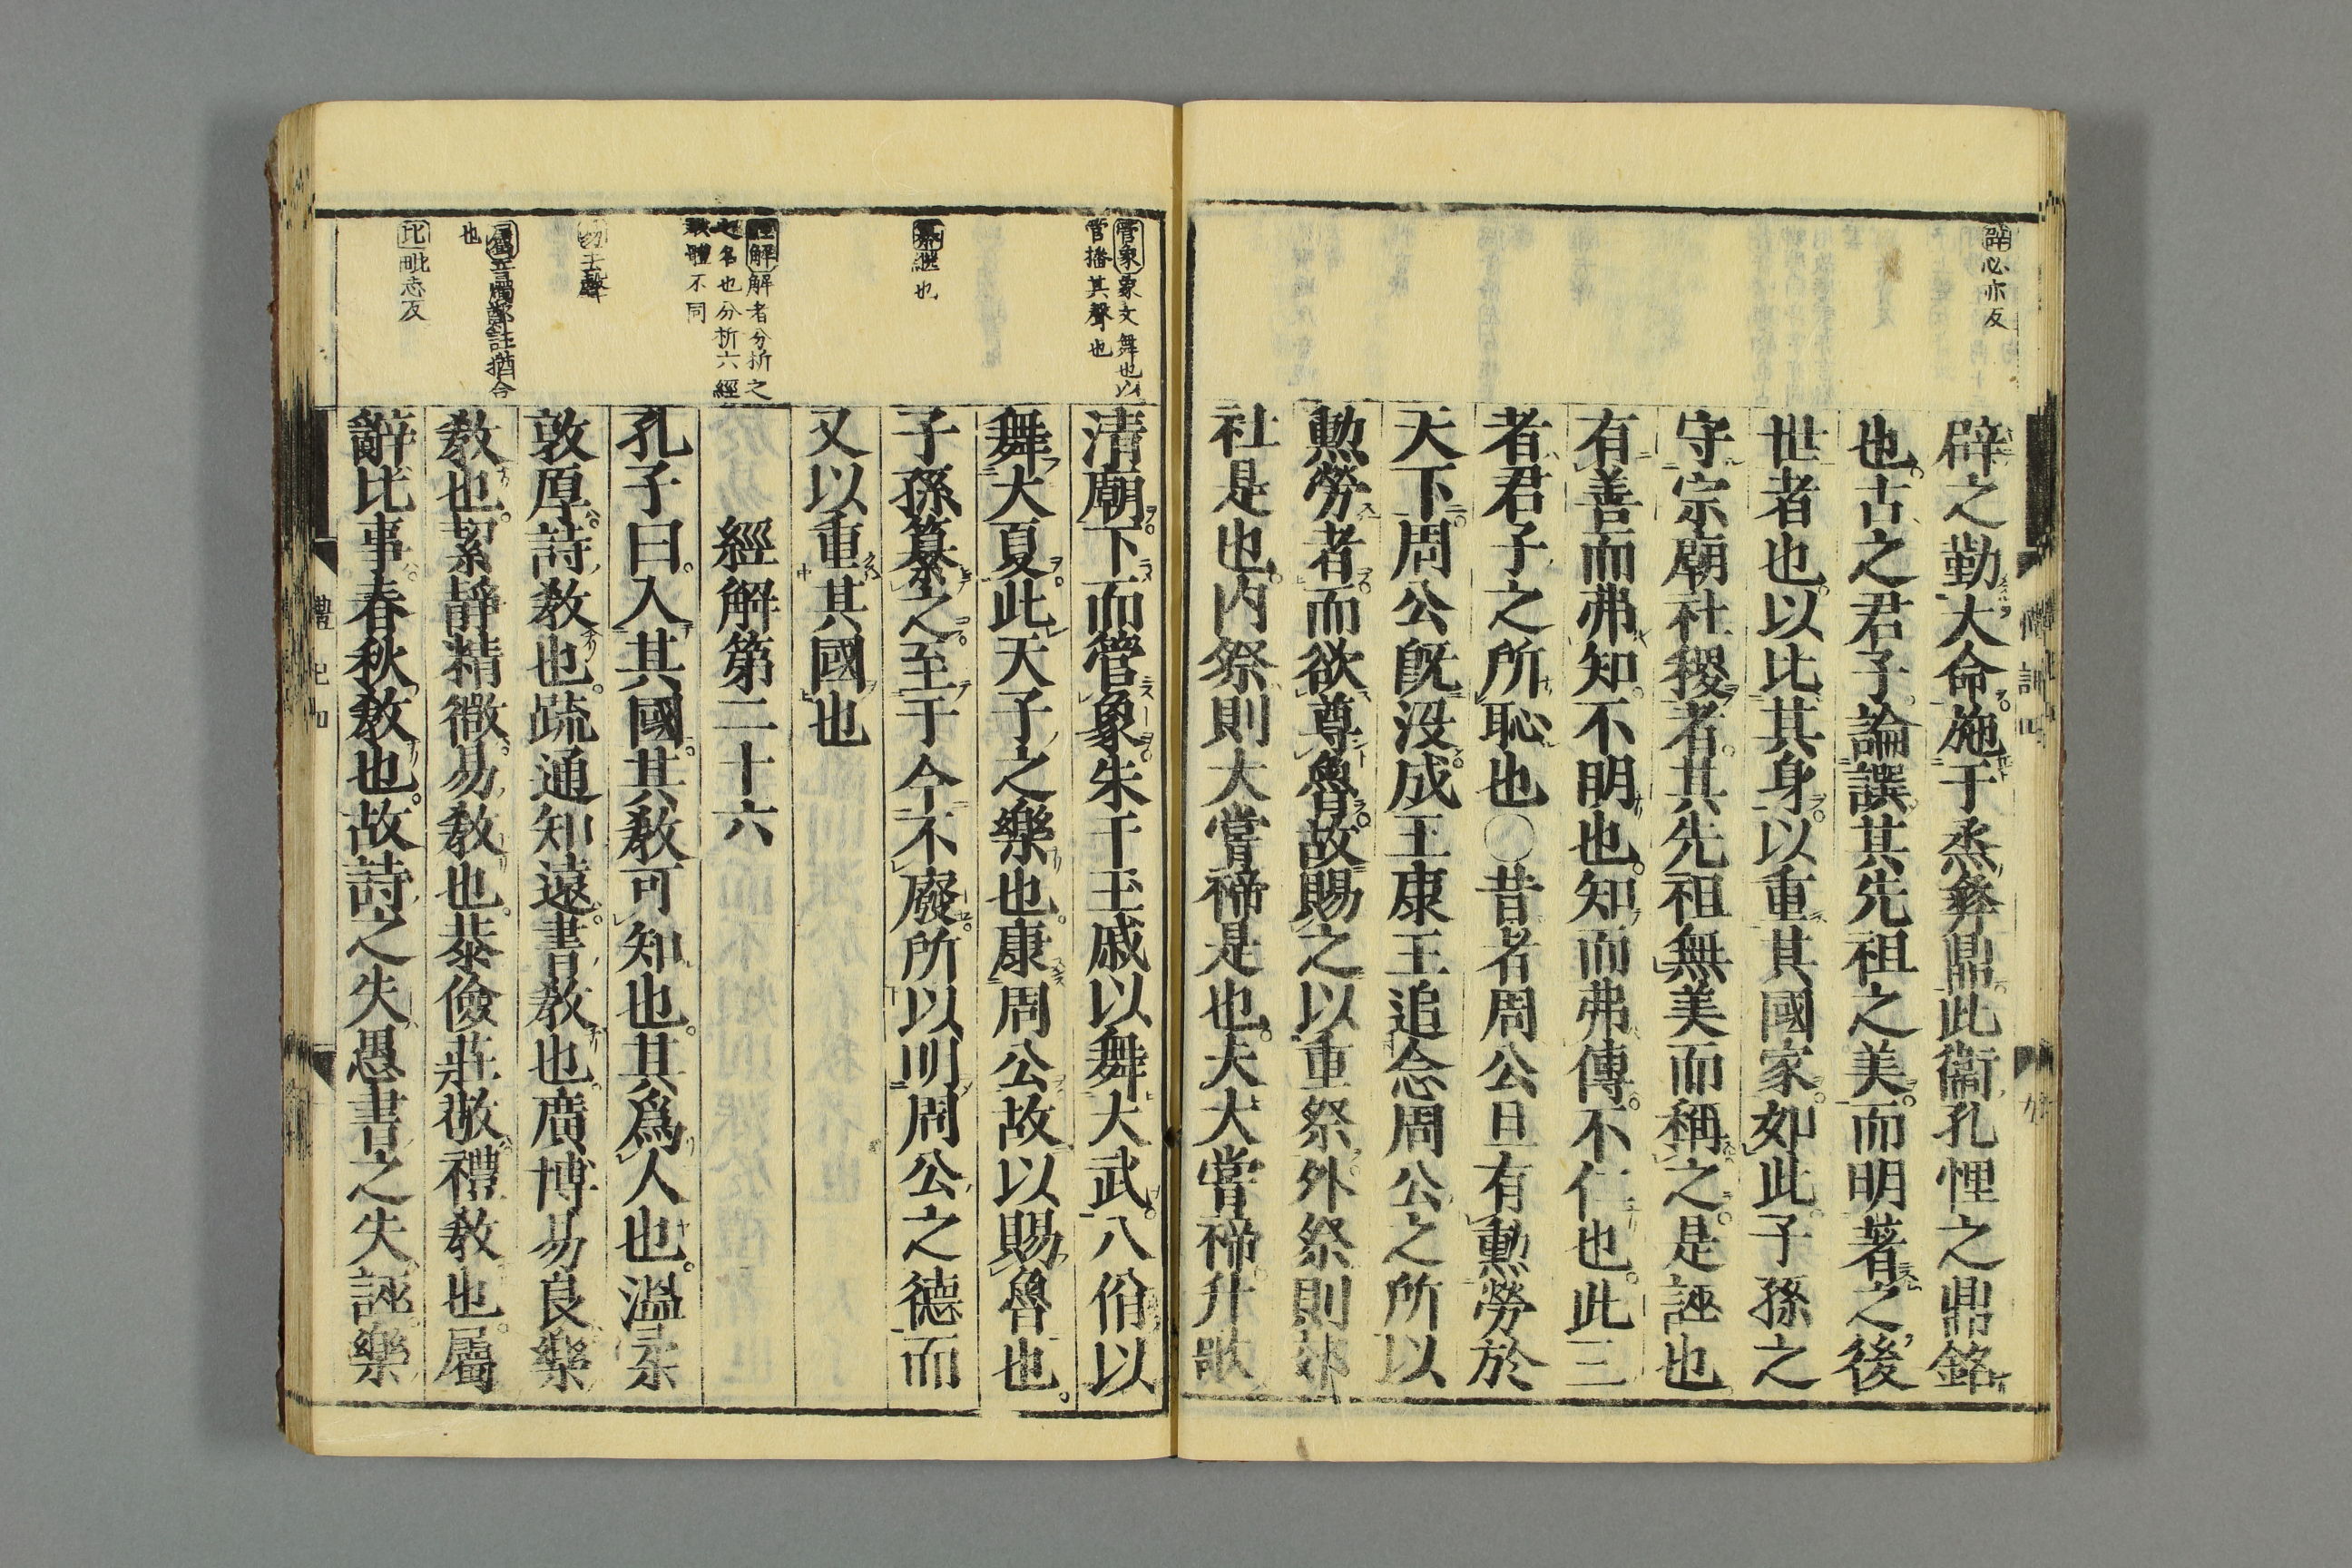 辟必亦反
辟之勤大命施于烝彝鼎此衞孔悝之鼎銘
也古之君子論譔其先祖之美而明著之後
世者也以比其身以重其國家如此子孫之
守宗廟社稷者其先祖無美而稱之是誣也
有善而弗知不明也知而弗傳不仁也此三
者君子之所恥也○昔者周公旦有勲勞於
天下周公既没成王康王追念周公之所以
勲勞者而欲尊魯故賜之以重祭外祭則郊
社是也内祭則大嘗禘是也夫大嘗禘升歌
管象象文舞也以
管播其聲也
纂繼也
經解解者分折之
名也分析六經
教體不同
易去聲
屬音屬鄭註猶合
也
比毗志反
清廟下而管象朱干玉戚以舞大武八佾以
舞大夏此天子之樂也康周公故以賜魯也
子孫纂之至于今不廢所以明周公之德而
又以重其國也
經解第二十六
孔子曰入其國其教可知也其爲人也溫柔
敦厚詩教也疏通知遠書教也廣博易良樂
教也絜靜精微易教也恭儉莊敬禮教也屬
辭比事春秋教也故詩之失愚書之失誣樂
禮記四